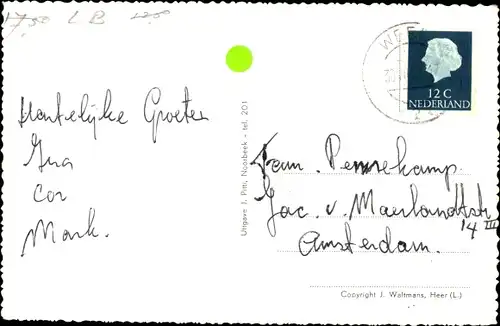 17,50 L B 12,50
Hartelijke Groeten
Ina
Cor
Mark.
Uitgave J. Pitti, Noorbeek - tel. 201
12 C
NEDERLAND
Fam. Pennekamp.
Jac. v. Maerlandtstr
14 III
Amsterdam.
Copyright J. Waltmans, Heer (L.)